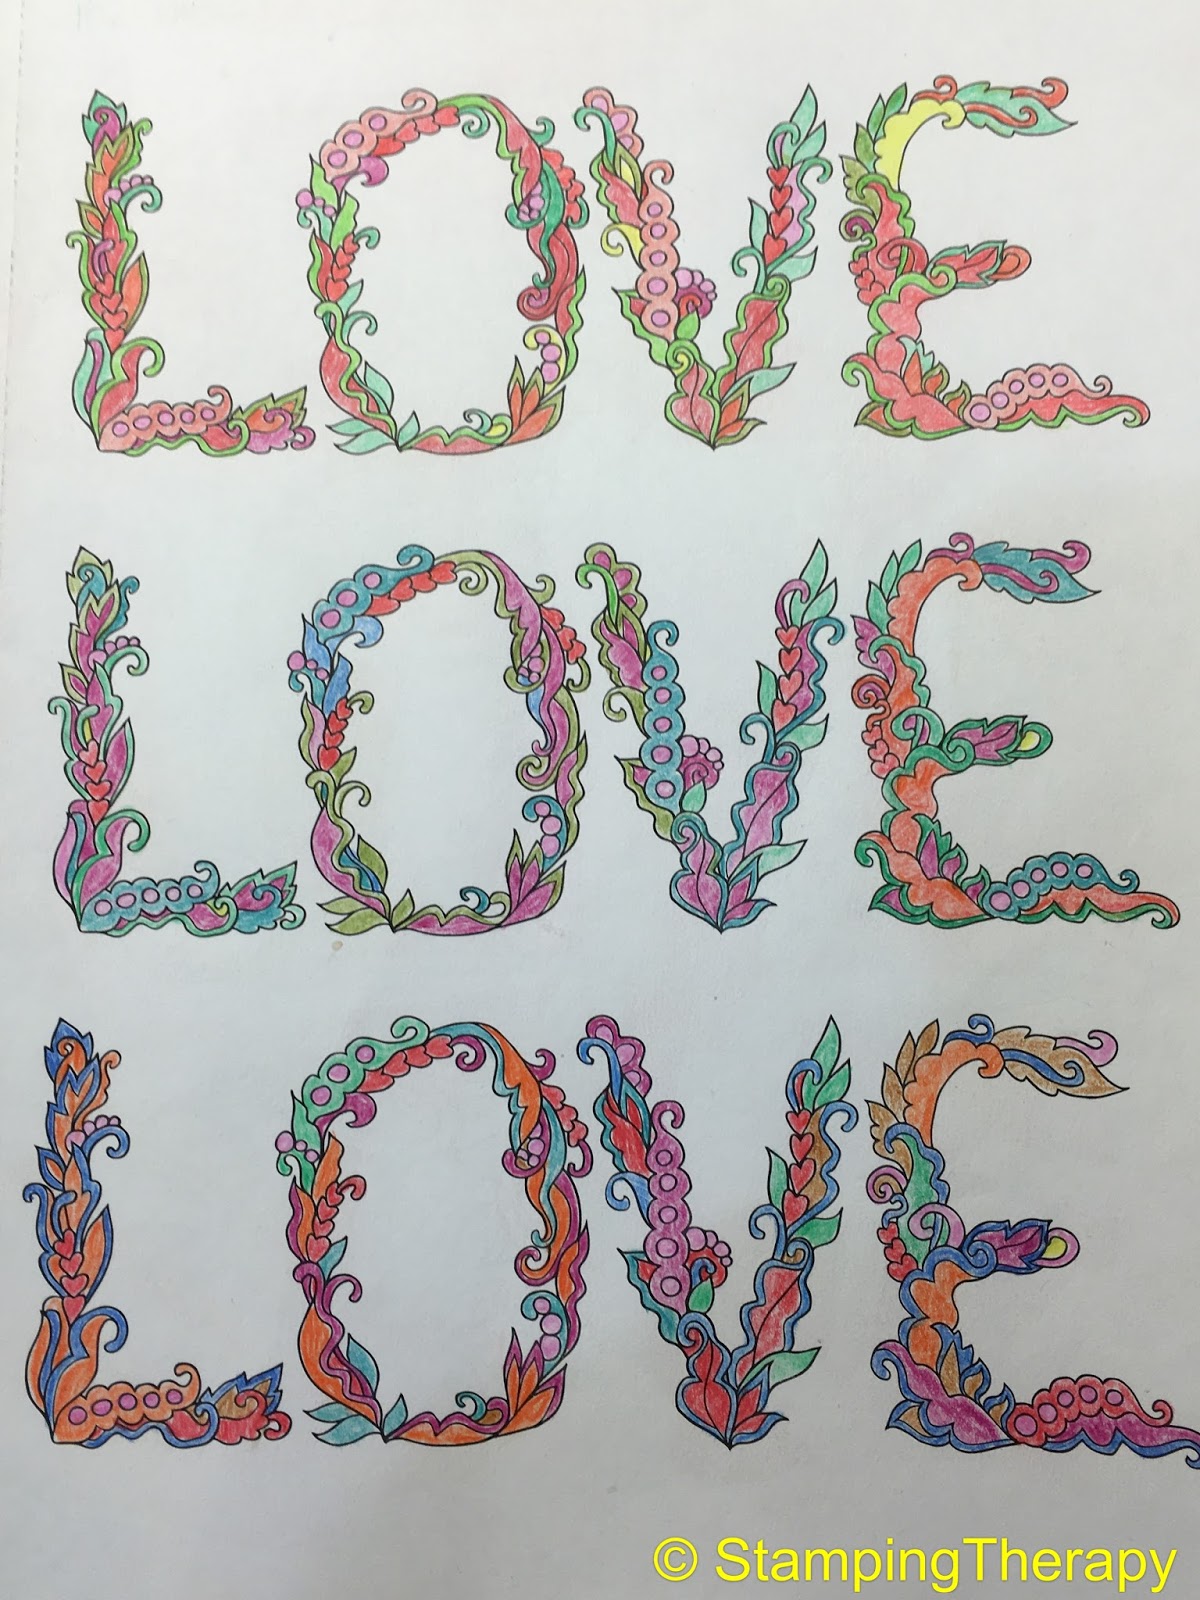 LOVE
LOVE
LOVE
© StampingTherapy